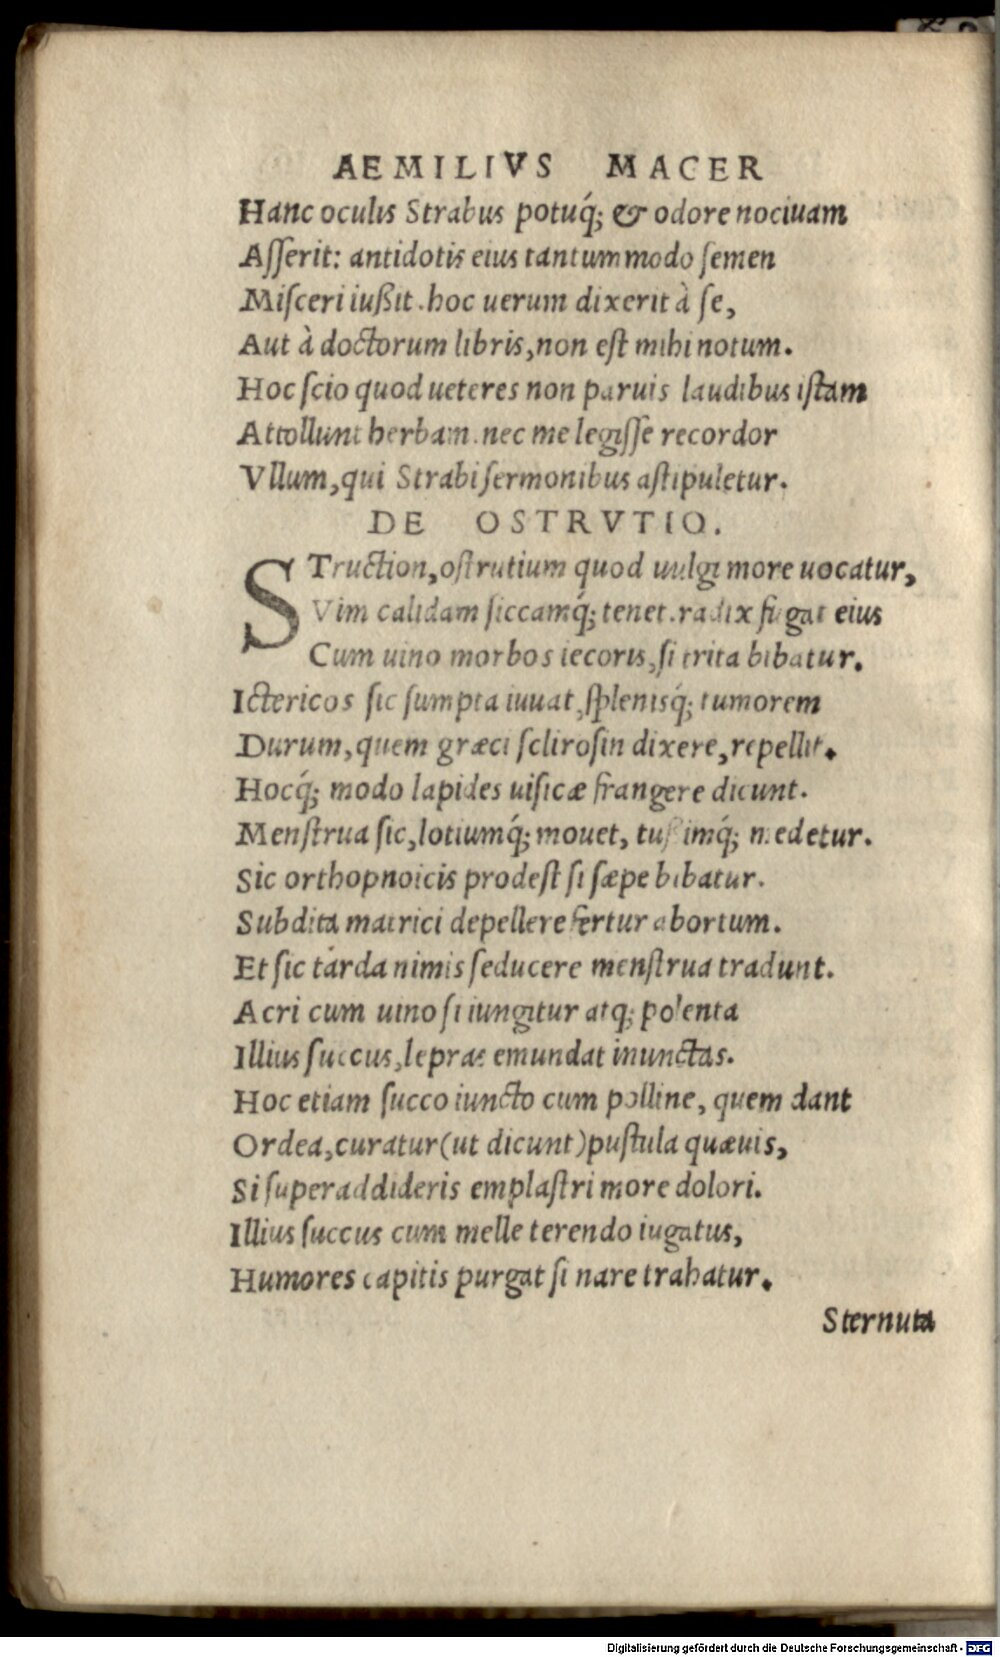 AEMILIVS MACER
Hanc oculis Strabus potuq́; & odore nociuam
Aſſerit: antidotis eius tantummodo ſemen
Miſceri iußit. hoc uerum dixerit à ſe,
Aut à doctorum libris, non eſt mihi notum.
Hoc ſcio quod ueteres non paruis laudibus iſtam
Attollunt herbam. nec me legiſſe recordor
Vllum, qui Strabi ſermonibus aſtipuletur.
DE OSTRVTIO.
STruction, oſtrutium quod uulgi more uocatur,
Vim calidam ſiccamq́; tenet. radix fugat eius
Cum uino morbos iecoris, ſi trita bibatur.
Ictericos ſic ſumpta iuuat, ſplenisq́; tumorem
Durum, quem græci ſcliroſin dixere, repellit.
Hocq́; modo lapides uiſicæ frangere dicunt.
Menſtrua ſic, lotiumq́; mouet, tuſſimq́; medetur.
Sic orthopnoicis prodeſt ſi ſæpe bibatur.
Subdita matrici depellere fertur abortum.
Et ſic tarda nimis ſeducere menſtrua tradunt.
Acri cum uino ſi iungitur atq; polenta
Illius ſuccus, lepras emundat inunctas.
Hoc etiam ſucco iuncto cum polline, quem dant
Ordea, curatur (ut dicunt) puſtula quæuis,
Si ſuperaddideris emplaſtri more dolori.
Illius ſuccus cum melle terendo iugatus,
Humores capitis purgat ſi nare trahatur.
Sternuta
Digitalisierung gefördert durch die Deutsche Forschungsgemeinschaft - DFG